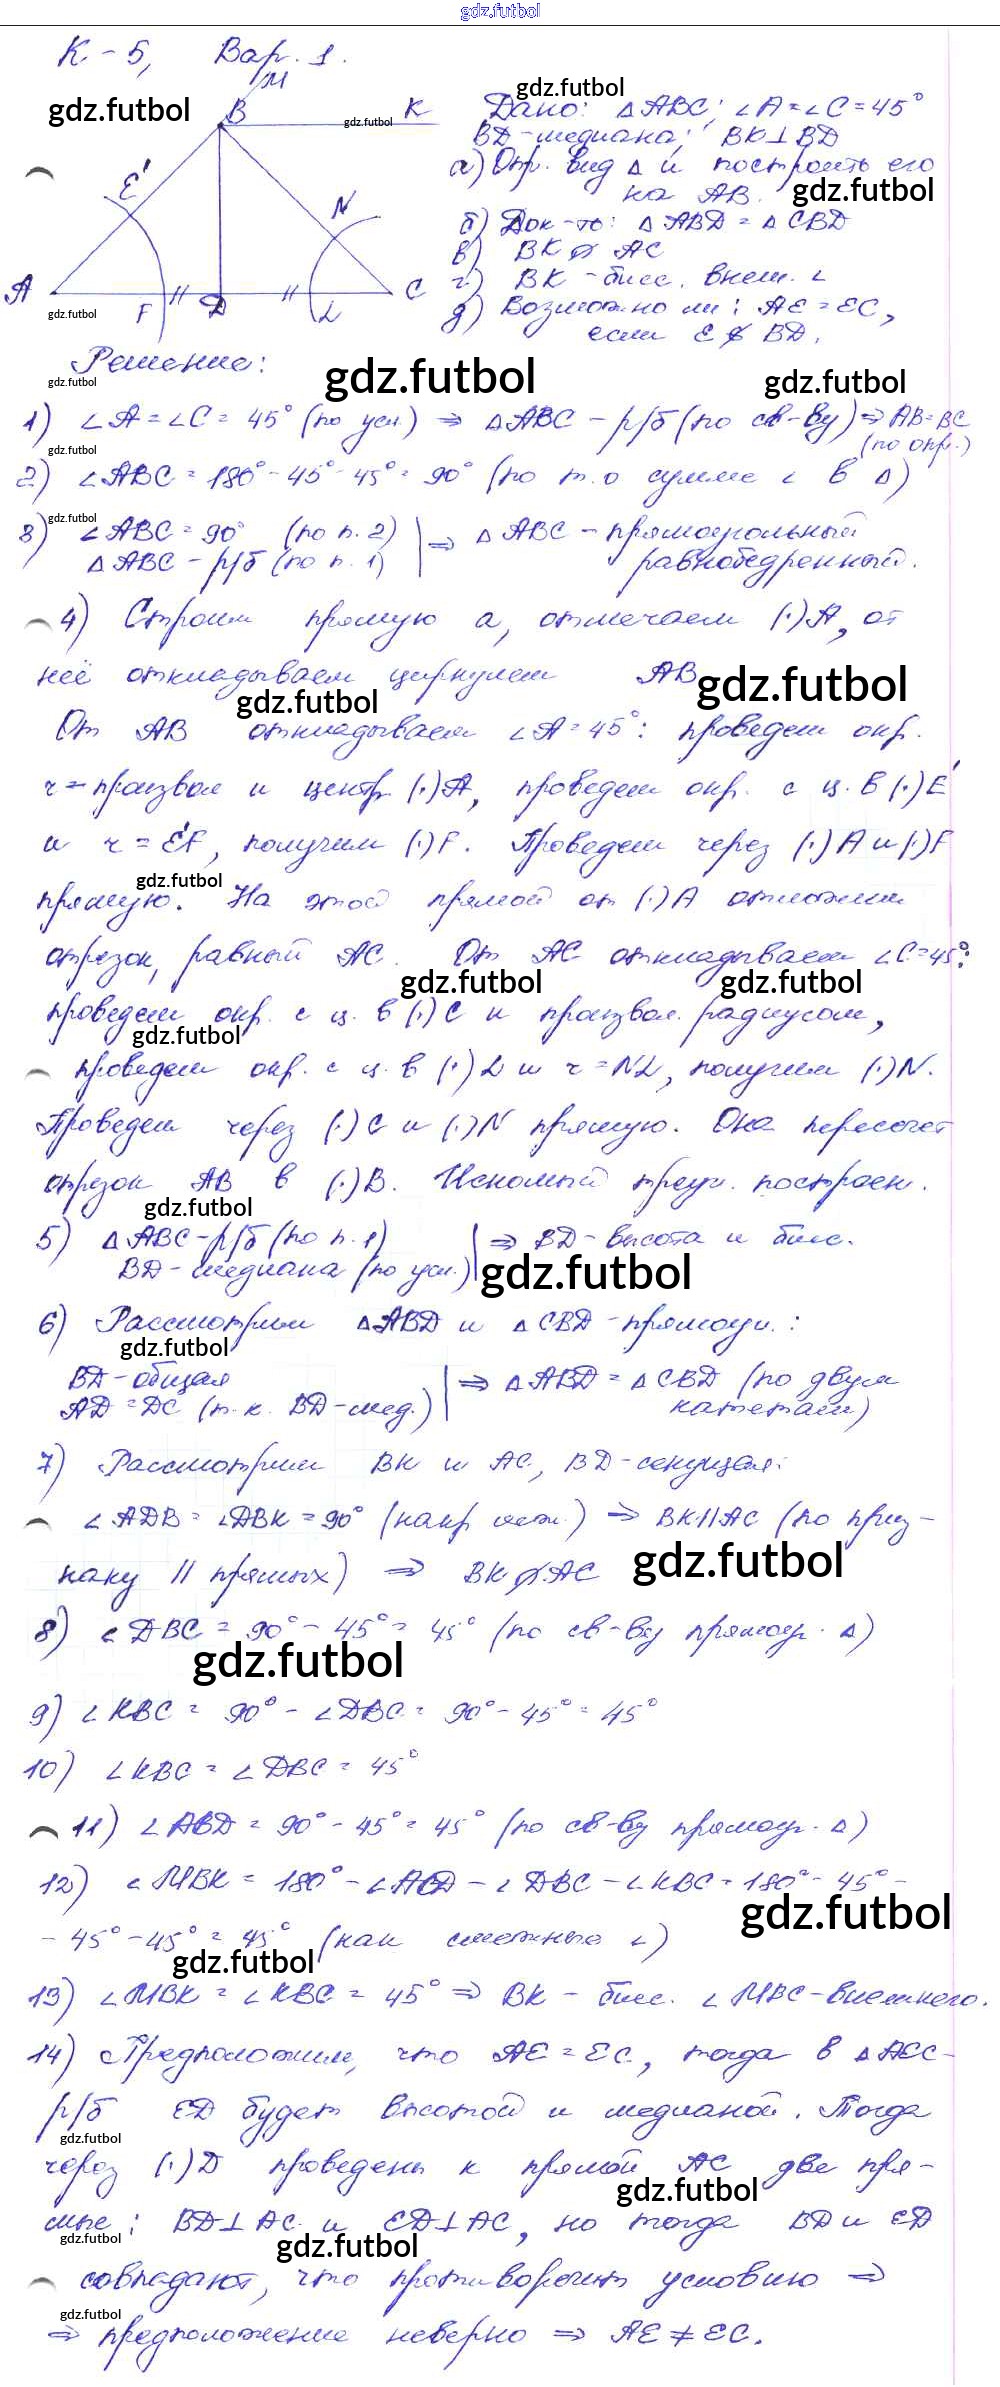 gdz.futbol
К-5, Вар. 1.
M
B
K
E'
N
A
F
D
L
C
Дано: △ABC; ∠A=∠C=45°
BD-медиана; BK⊥BD
а) Опр. вид △ и построить его
на AB.
б) Док-ть: △ABD = △CBD
в) BK ∦ AC
г) BK -бисс. внеш. ∠
д) Возможно ли: AE=EC,
если E ∉ BD.
Решение:
1) ∠A=∠C= 45° (по усл.) ⇒ △ABC - р/б (по св-ву) ⇒ AB=BC
(по опр.)
2) ∠ABC = 180° - 45° - 45° = 90° (по т. о сумме ∠ в △)
3) ∠ABC = 90° (по п. 2) | ⇒ △ABC - прямоугольный
△ABC - р/б (по п. 1) равнобедренный.
4) Строим прямую a, отмечаем (·)A, от
неё откладываем циркулем AB
От AB откладываем ∠A=45°: проведем окр.
r = произвол и центр (·)A, проведем окр. с ц. в (·)E'
и r = E'F, получим (·)F. Проведем через (·)A и (·)F
прямую. На этой прямой от (·)A отложим
отрезок, равный AC. От AC откладываем ∠C=45°:
проведем окр. с ц. в (·)C и произвол. радиусом,
проведем окр. с ц. в (·)L и r = NL, получим (·)N.
Проведем через (·)C и (·)N прямую. Она пересечет
отрезок AB в (·)B. Искомый треуг. построен.
5) △ABC-р/б (по п. 1) | ⇒ BD-высота и бисс.
BD-медиана (по усл.)
6) Рассмотрим △ABD и △CBD-прямоуг.:
BD-общая | ⇒ △ABD = △CBD (по двум
AD=DC (т.к. BD-мед.) катетам)
7) Рассмотрим BK и AC, BD-секущая:
∠ADB = ∠DBK = 90° (накр леж.) ⇒ BK||AC (по приз-
наку || прямых) ⇒ BK ∦ AC
8) ∠DBC = 90° - 45° = 45° (по св-ву прямоуг. △)
9) ∠KBC = 90° - ∠DBC = 90° - 45° = 45°
10) ∠KBC = ∠DBC = 45°
11) ∠ABD = 90° - 45° = 45° (по св-ву прямоуг. △)
12) ∠MBK = 180° - ∠ABD - ∠DBC - ∠KBC = 180° - 45° -
- 45° - 45° = 45° (как смежные ∠)
13) ∠MBK = ∠KBC = 45° ⇒ BK - бисс. ∠MBC-внешнего.
14) Предположим, что AE = EC, тогда в △AEC-
р/б ED будет высотой и медианой. Тогда
через (·)D проведены к прямой AC две пря-
мые: BD⊥AC и ED⊥AC, но тогда BD и ED
совпадают, что противоречит условию ⇒
⇒ предположение неверно ⇒ AE ≠ EC.